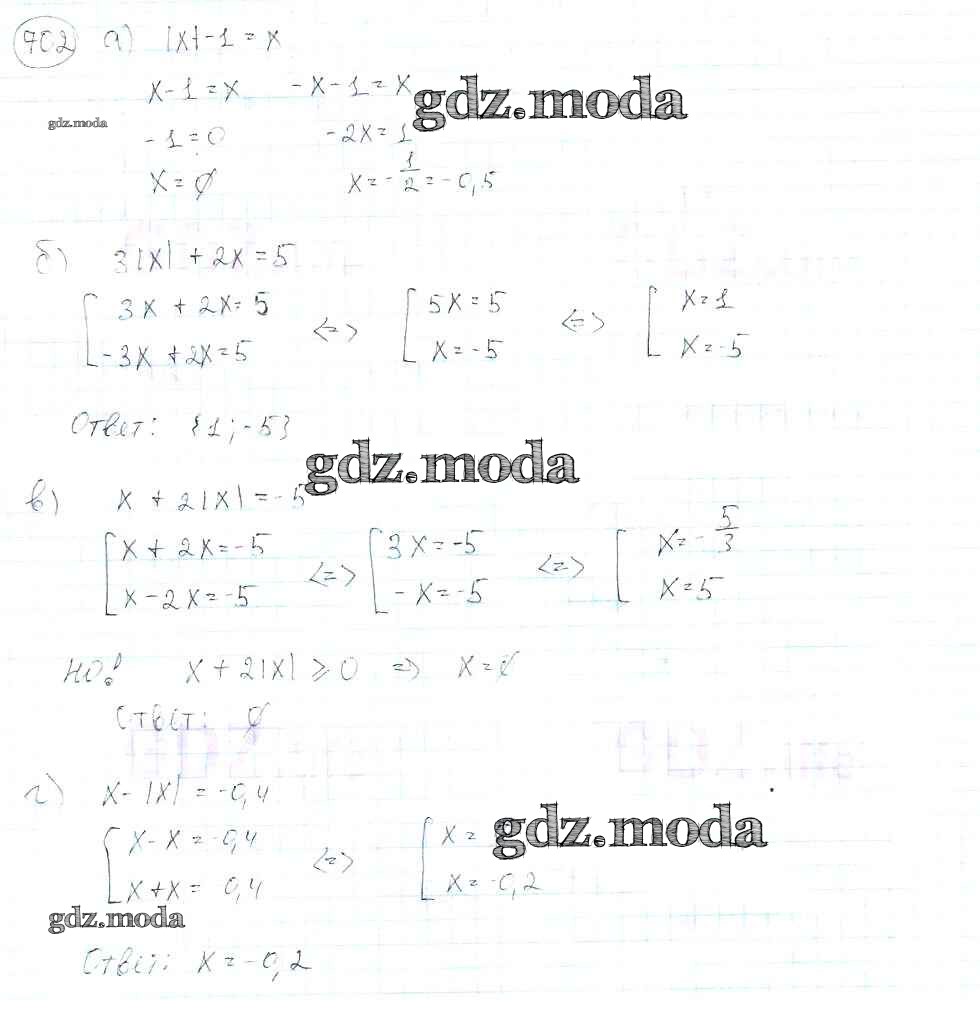 702 а) |x|-1 = x
x-1=x -x-1=x
gdz.moda
gdz.moda
-1=0 -2x=1
x=∅ x=-1/2=-0,5
б) 3|x| + 2x = 5
[ 3x + 2x = 5 <=> [ 5x = 5 <=> [ x = 1
-3x + 2x = 5 x = -5 x = -5
Ответ: {1; -5}
gdz.moda
в) x + 2|x| = -5
[ x + 2x = -5 <=> [ 3x = -5 <=> [ x = -5/3
x - 2x = -5 -x = -5 x = 5
НО! x + 2|x| ⩾ 0 => x = ∅
Ответ: ∅
г) x - |x| = -0,4
[ x - x = -0,4 <=> [ x =
gdz.moda
x + x = 0,4 x = -0,2
gdz.moda
Ответ: x = -0,2